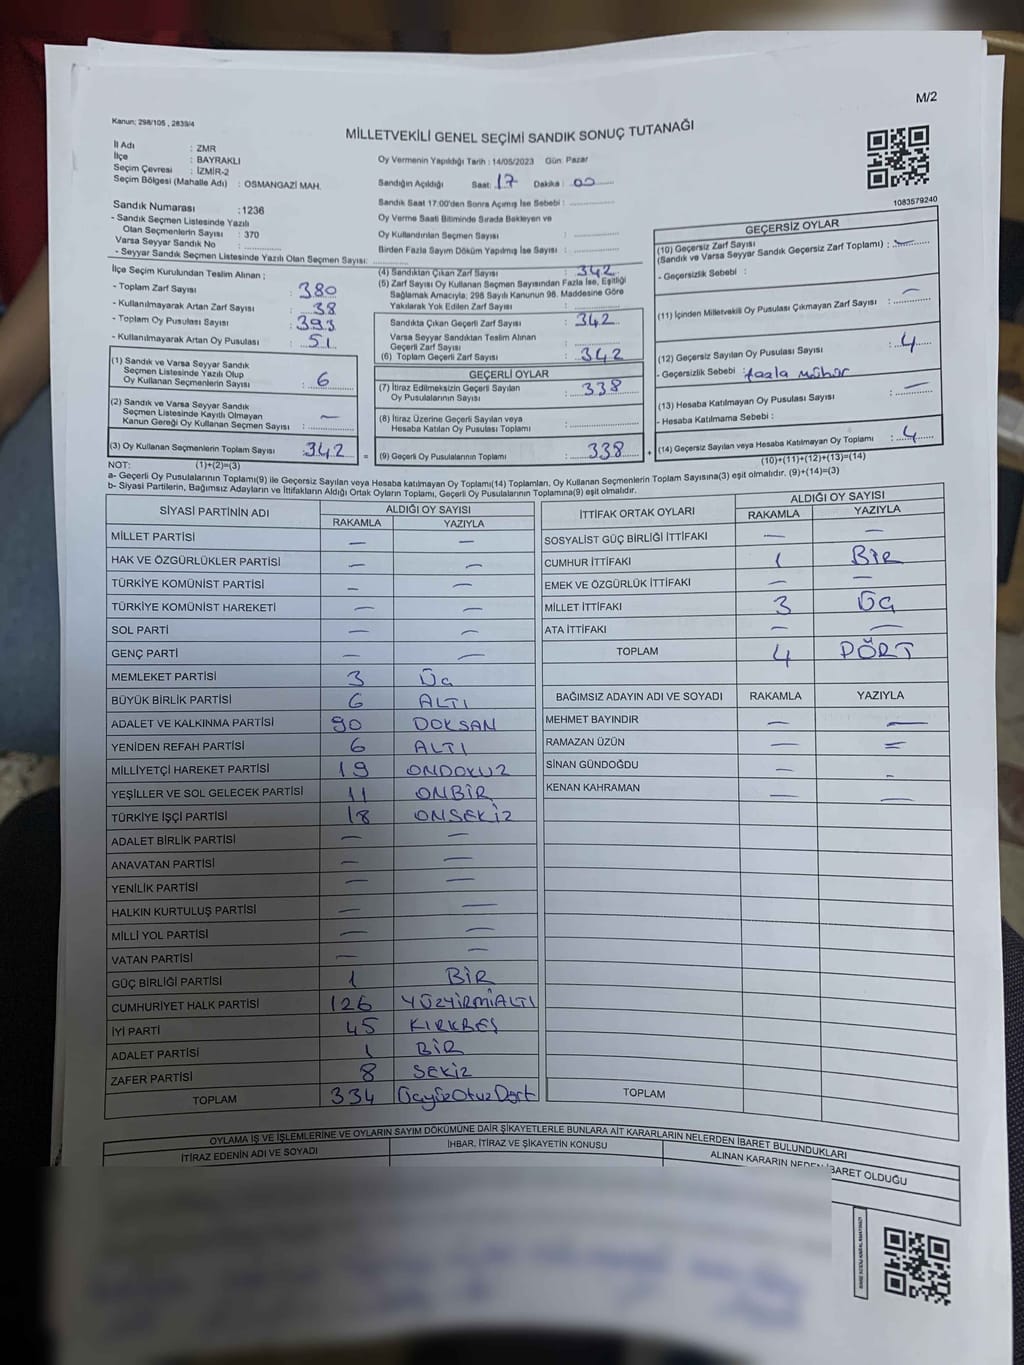 M/2
Kanun; 298/105 , 2839/4
MİLLETVEKİLİ GENEL SEÇİMİ SANDIK SONUÇ TUTANAĞI
İl Adı : ZMR
İlçe : BAYRAKLI
Seçim Çevresi : İZMİR-2
Seçim Bölgesi (Mahalle Adı) : OSMANGAZİ MAH.
Oy Vermenin Yapıldığı Tarih : 14/05/2023 Gün: Pazar
Sandığın Açıldığı Saat: 17 Dakika : 00
Sandık Saat 17:00'den Sonra Açımış İse Sebebi :
Oy Verme Saati Bitiminde Sırada Bekleyen ve
Oy Kullandırılan Seçmen Sayısı :
Birden Fazla Sayım Döküm Yapılmış İse Sayısı :
1083579240
Sandık Numarası :1236
- Sandık Seçmen Listesinde Yazılı
Olan Seçmenlerin Sayısı : 370
Varsa Seyyar Sandık No :
- Seyyar Sandık Seçmen Listesinde Yazılı Olan Seçmen Sayısı:
İlçe Seçim Kurulundan Teslim Alınan ;
- Toplam Zarf Sayısı : 380
- Kullanılmayarak Artan Zarf Sayısı : 38
- Toplam Oy Pusulası Sayısı : 393
- Kullanılmayarak Artan Oy Pusulası : 51
(1) Sandık ve Varsa Seyyar Sandık
Seçmen Listesinde Yazılı Olup
Oy Kullanan Seçmenlerin Sayısı : 6
(2) Sandık ve Varsa Seyyar Sandık
Seçmen Listesinde Kayıtlı Olmayan
Kanun Gereği Oy Kullanan Seçmen Sayısı : —
(3) Oy Kullanan Seçmenlerin Toplam Sayısı : 342
(4) Sandıktan Çıkan Zarf Sayısı : 342
(5) Zarf Sayısı Oy Kullanan Seçmen Sayısından Fazla İse, Eşitliği
Sağlamak Amacıyla; 298 Sayılı Kanunun 98. Maddesine Göre
Yakılarak Yok Edilen Zarf Sayısı :
Sandıkta Çıkan Geçerli Zarf Sayısı : 342
Varsa Seyyar Sandıktan Teslim Alınan
Geçerli Zarf Sayısı :
(6) Toplam Geçerli Zarf Sayısı : 342
GEÇERLİ OYLAR
(7) İtiraz Edilmeksizin Geçerli Sayılan
Oy Pusulalarının Sayısı : 338
(8) İtiraz Üzerine Geçerli Sayılan veya
Hesaba Katılan Oy Pusulası Toplamı :
= (9) Geçerli Oy Pusulalarının Toplamı : 338 +
GEÇERSİZ OYLAR
(10) Geçersiz Zarf Sayısı
(Sandık ve Varsa Seyyar Sandık Geçersiz Zarf Toplamı) : —
- Geçersizlik Sebebi :
(11) İçinden Milletvekili Oy Pusulası Çıkmayan Zarf Sayısı : —
(12) Geçersiz Sayılan Oy Pusulası Sayısı : 4
- Geçersizlik Sebebi : fazla mühür
(13) Hesaba Katılmayan Oy Pusulası Sayısı : —
- Hesaba Katılmama Sebebi :
(14) Geçersiz Sayılan veya Hesaba Katılmayan Oy Toplamı : 4
NOT: (1)+(2)=(3) (10)+(11)+(12)+(13)=(14)
a- Geçerli Oy Pusulalarının Toplamı(9) ile Geçersiz Sayılan veya Hesaba katılmayan Oy Toplamı(14) Toplamları, Oy Kullanan Seçmenlerin Toplam Sayısına(3) eşit olmalıdır. (9)+(14)=(3)
b- Siyasi Partilerin, Bağımsız Adayların ve İttifakların Aldığı Ortak Oyların Toplamı, Geçerli Oy Pusulalarının Toplamına(9) eşit olmalıdır.
SİYASİ PARTİNİN ADI ALDIĞI OY SAYISI
RAKAMLA YAZIYLA
MİLLET PARTİSİ — —
HAK VE ÖZGÜRLÜKLER PARTİSİ — —
TÜRKİYE KOMÜNİST PARTİSİ — —
TÜRKİYE KOMÜNİST HAREKETİ — —
SOL PARTİ — —
GENÇ PARTİ — —
MEMLEKET PARTİSİ 3 Üç
BÜYÜK BİRLİK PARTİSİ 6 ALTI
ADALET VE KALKINMA PARTİSİ 90 DOKSAN
YENİDEN REFAH PARTİSİ 6 ALTI
MİLLİYETÇİ HAREKET PARTİSİ 19 ONDOKUZ
YEŞİLLER VE SOL GELECEK PARTİSİ 11 ONBİR
TÜRKİYE İŞÇİ PARTİSİ 18 ONSEKİZ
ADALET BİRLİK PARTİSİ — —
ANAVATAN PARTİSİ — —
YENİLİK PARTİSİ — —
HALKIN KURTULUŞ PARTİSİ — —
MİLLİ YOL PARTİSİ — —
VATAN PARTİSİ — —
GÜÇ BİRLİĞİ PARTİSİ 1 BİR
CUMHURİYET HALK PARTİSİ 126 YÜZYİRMİALTI
İYİ PARTİ 45 KIRKBEŞ
ADALET PARTİSİ 1 BİR
ZAFER PARTİSİ 8 SEKİZ
TOPLAM 334 ÜçyüzOtuzDört
İTTİFAK ORTAK OYLARI ALDIĞI OY SAYISI
RAKAMLA YAZIYLA
SOSYALİST GÜÇ BİRLİĞİ İTTİFAKI — —
CUMHUR İTTİFAKI 1 BİR
EMEK VE ÖZGÜRLÜK İTTİFAKI — —
MİLLET İTTİFAKI 3 ÜÇ
ATA İTTİFAKI — —
TOPLAM 4 DÖRT
BAĞIMSIZ ADAYIN ADI VE SOYADI RAKAMLA YAZIYLA
MEHMET BAYINDIR — —
RAMAZAN ÜZÜN — =
SİNAN GÜNDOĞDU — -
KENAN KAHRAMAN — —
TOPLAM
OYLAMA İŞ VE İŞLEMLERİNE VE OYLARIN SAYIM DÖKÜMÜNE DAİR ŞİKAYETLERLE BUNLARA AİT KARARLARIN NELERDEN İBARET BULUNDUKLARI
İTİRAZ EDENİN ADI VE SOYADI İHBAR, İTİRAZ VE ŞİKAYETİN KONUSU ALINAN KARARIN NEDEN İBARET OLDUĞU